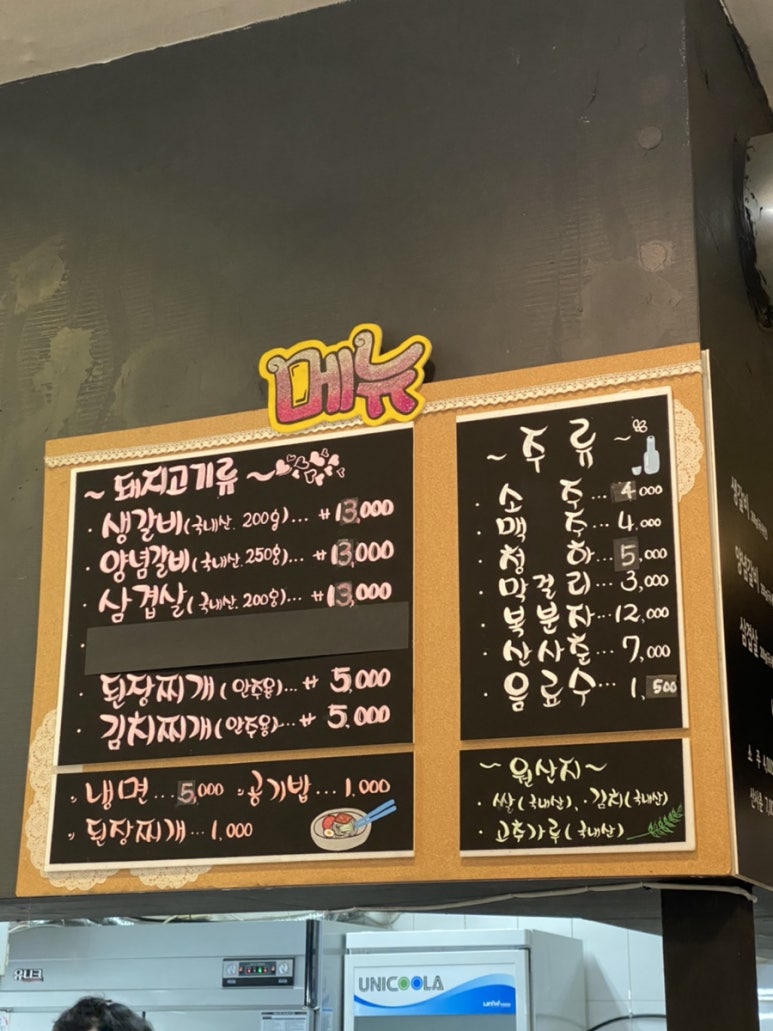 메뉴
~ 돼지고기류 ~
· 생갈비 (국내산. 200g)... ₩ 13,000
· 양념갈비 (국내산. 250g)... ₩ 13,000
· 삼겹살 (국내산. 200g)... ₩ 13,000
· 된장찌개 (안주용)... ₩ 5,000
· 김치찌개 (안주용)... ₩ 5,000
냉면 ... 5,000 공기밥 ... 1,000
된장찌개 ... 1,000
~ 주류 ~
· 소주 ... 4,000
· 맥주 ... 4,000
· 청하 ... 5,000
· 막걸리 ... 3,000
· 복분자 ... 12,000
· 산사춘 ... 7,000
· 음료수 ... 1,500
~ 원산지 ~
· 쌀 (국내산), · 김치 (국내산)
· 고추가루 (국내산)
생갈비
양념갈비
삼겹살
소주 4,000
유니크
UNICOOLA